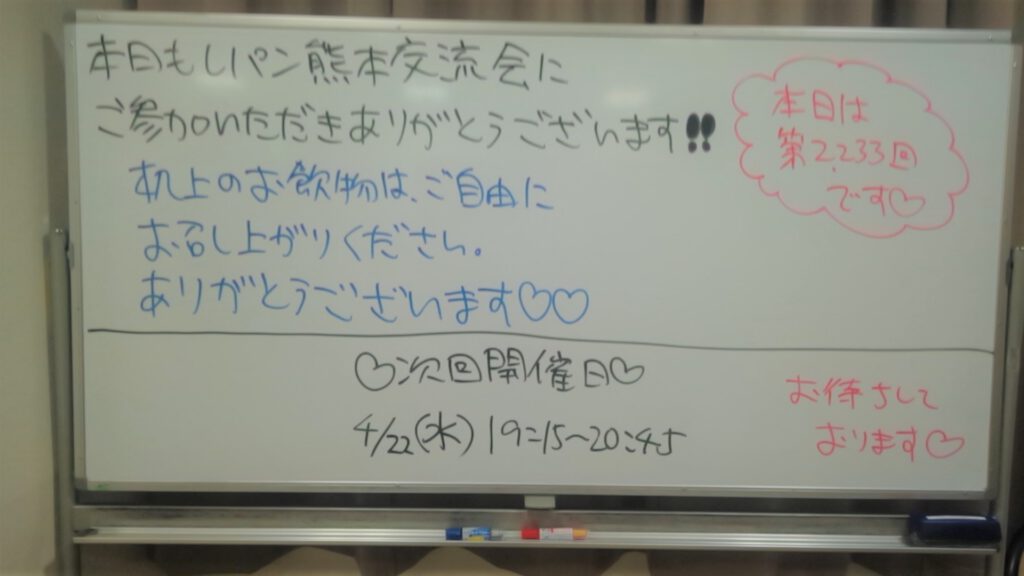 本日もしパン熊本交流会に
ご参加いただきありがとうございます!!
本日は
第2,233回
です♡
机上のお飲物は、ご自由に
お召し上がりください。
ありがとうございます♡♡
♡次回開催日♡
4/22(水) 19:15~20:45
お待ちして
おります♡